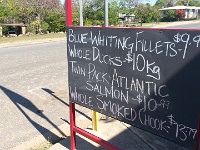 BLUE WHITING FILLETS-$9.9
WHOLE DUCKS-$10kg
TWIN PACK ATLANTIC
SALMON-$10.99
WHOLE SMOKED CHOOK-$13.99